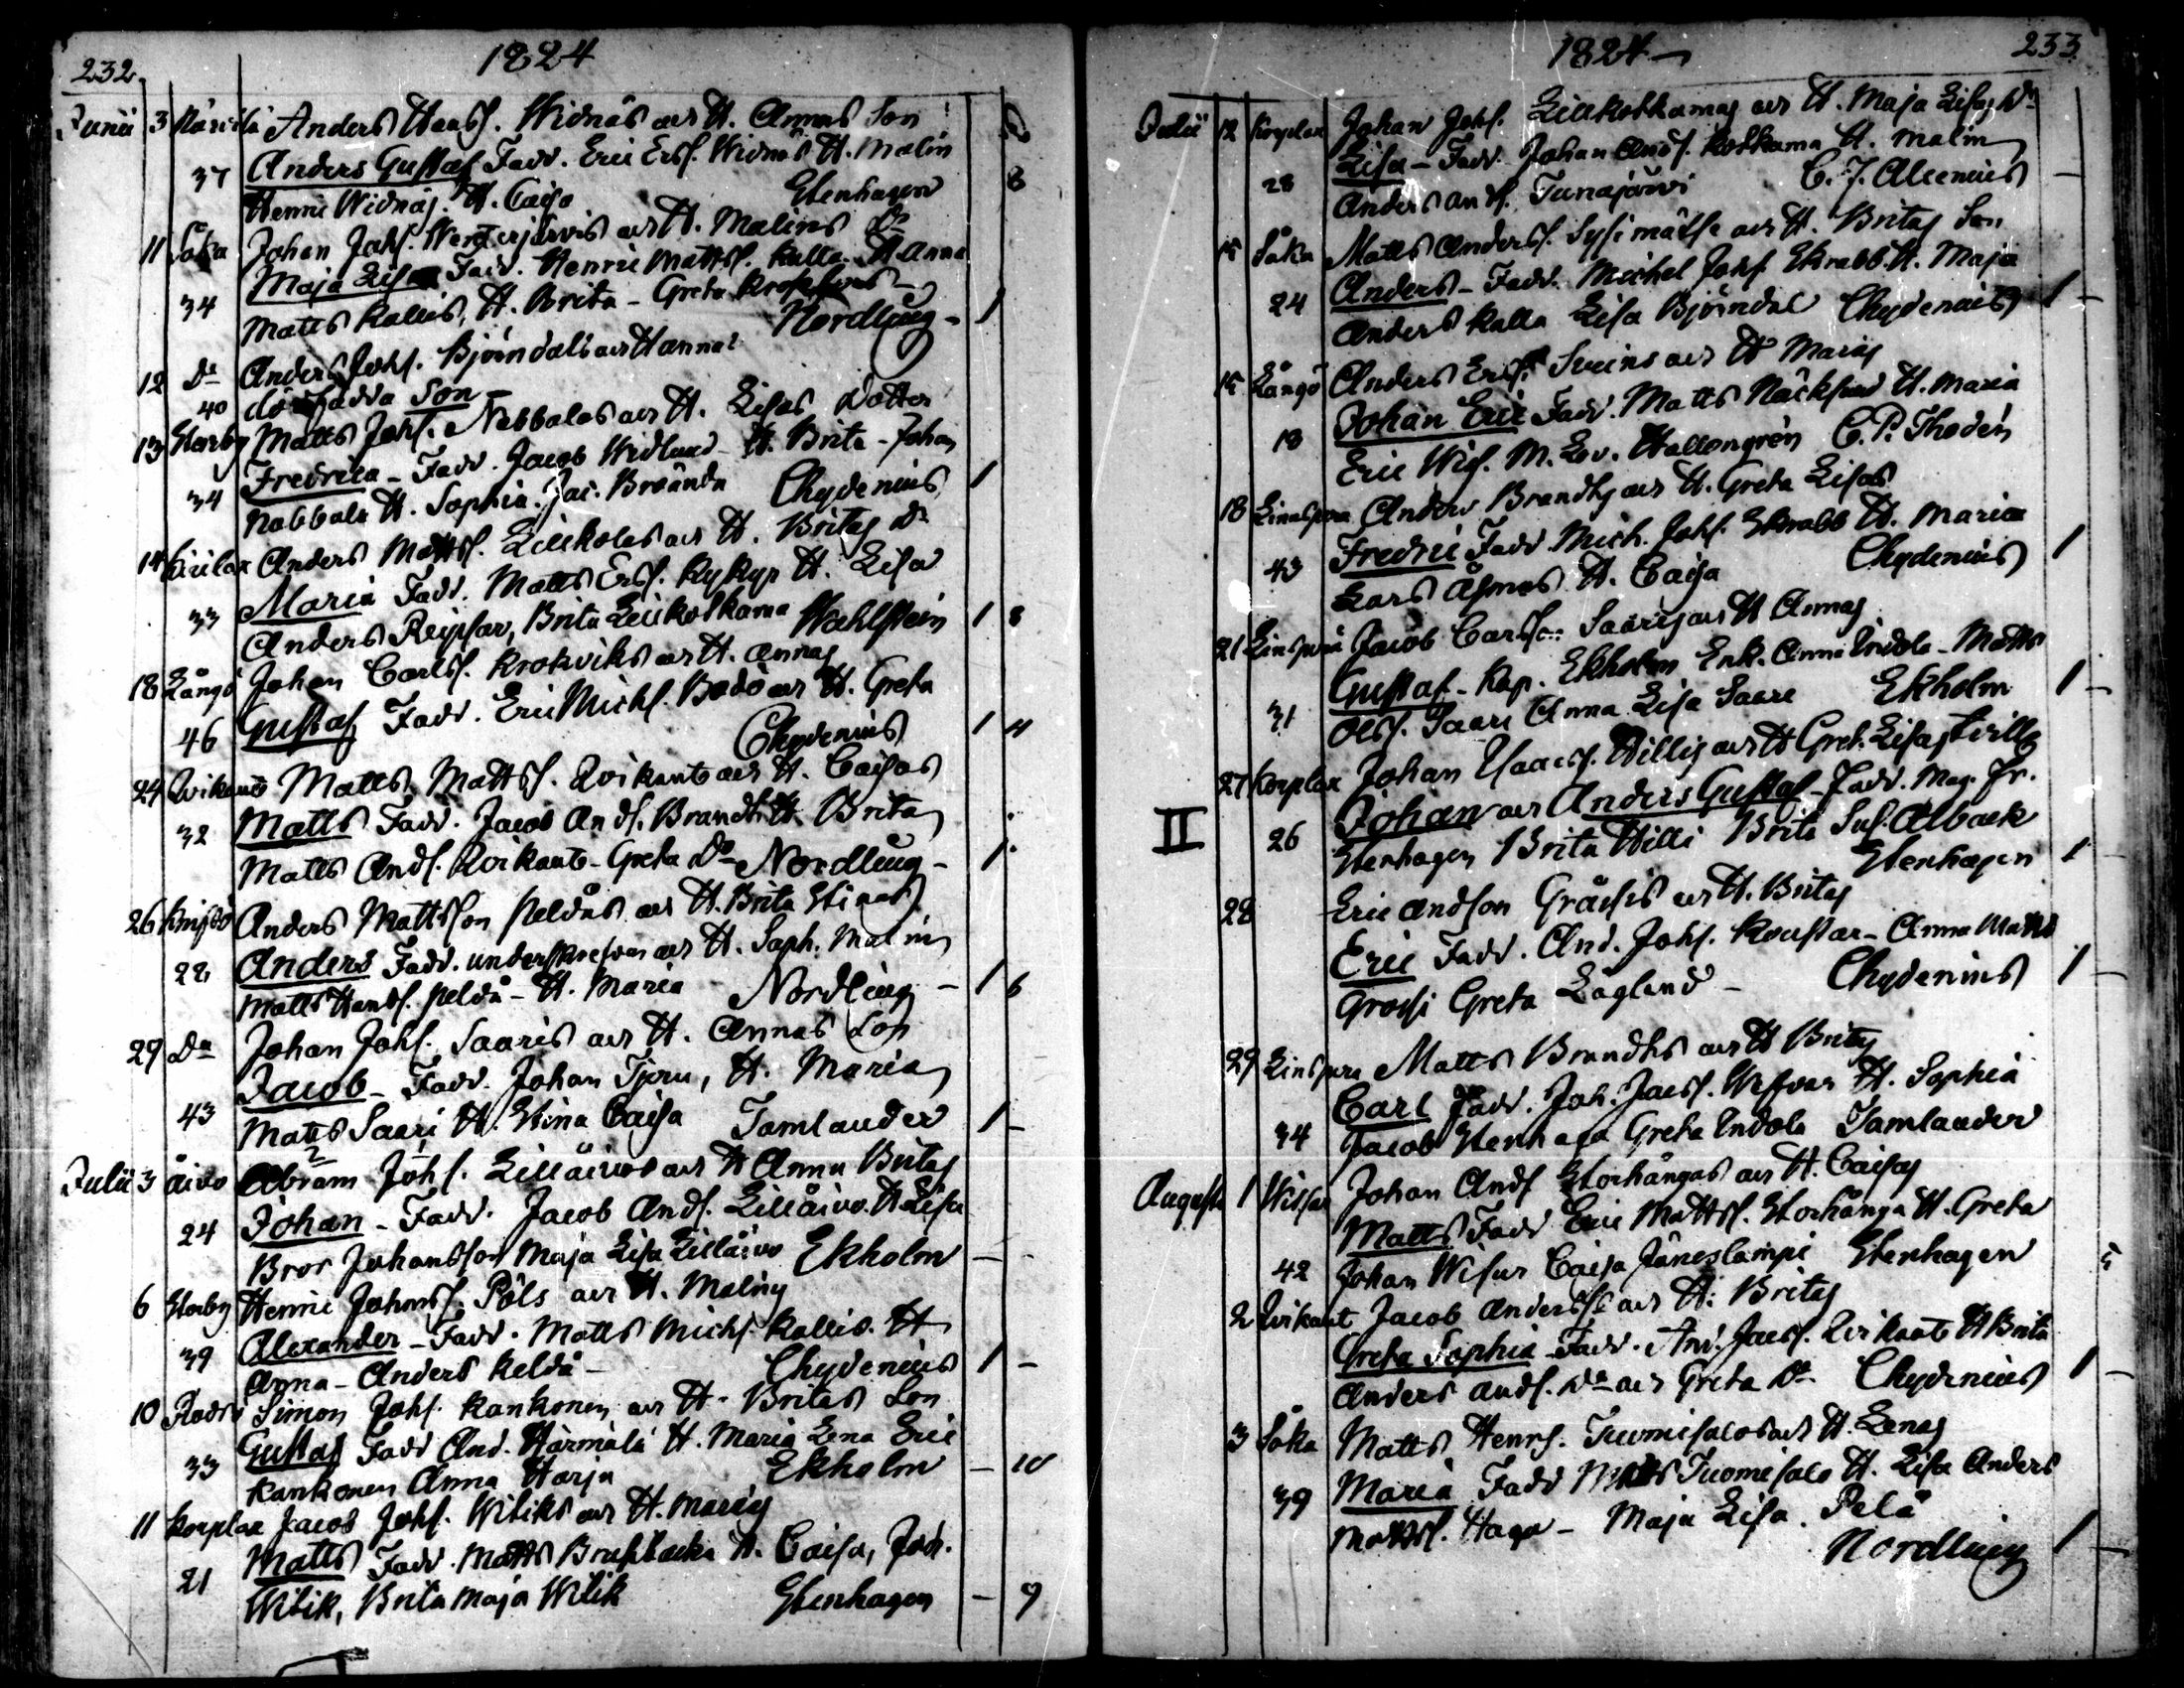 232.
1824
Junii 3 Anders Hanss. Widnäs och H. Annas Son
37 Anders Gustaf Fadd. Eric Erss. Widnäs H. Malin
Henric Widnäs. H. Caisa Stenhagen 8
11 Såka Johan Johs. Wenterjärvis och H. Malins Dr
Maja Lisa Fadd. Henric Mattss. Kalla. H Anna
34 Matts Kallis, H. Brita - Greta Nordlung - 1
12 Do Anders Johs. Björndals och H annas
40 dödfödda Son
13 Storby Matts Johs. Nabbalas och H. Lisas Dotter
Fredrica - Fadd. Jacob Widlund - H. Brita - Johan
34 Nabbala H. Sophia. Jac. Brännda Chydenius 1
14 Anders Mattss. Lillkolas och H. Britas Dr
33 Maria Fadd. Matts Erss. Kykyr H. Lisa
Anders Reipsar, Brita Lillkotkama Wahlstein 1 8
18 Långö Johan Carlss. Krokviks och H. Annas
46 Gustaf Fadd. Eric Michs. Bodö och H. Greta
Chydenius 1 4
24 Wikant Matts Mattss. Wikants och H. Caisas
32 Matts Fadd. Jacob Ands. Brandt H. Brita
Matts Ands. Wikants - Greta Do Nordlung - 1
26 Anders Mattsson Peldås och H. Brita Stinas
22 Anders Fadd. underskrefven och H. Soph. Malin
Matts Hanss. Peldå - H. Maria Nordlung - 1 6
29 Do Johan Johs. Saaris och H. Annas Son
Jacob - Fadd. Johan Tjeru, H. Maria
43 Matts Saari H. Stina Caisa Tamlander 1 -
Julii 3 Åivo Abram Johs. Lillåivos och H Anna Britas
24 Johan - Fadd. Jacob Ands. Lillåivo. H Lisa
Bror Johansson Maja Lisa Lillåivo Ekholm -
6 Storby Henric Johanss. Påls och H. Malins
39 Alexander - Fadd. Matts Michs. Kallis. H
Anna - Anders Keldå - Chydenius 1 -
10 Rödsö Simon Johs. Kankonen och H. Britas Son
33 Gustaf Fadd And. Härmälä H. Maria Lena Eric
Kankonen Anna Harju Ekholm - 10
11 Korplax Jacob Johs. Witiks och H. Marias
21 Matts Fadd. Matts Brusbacka H. Caisa, Joh.
Witik, Brita Maja Witik Stenhagen - 9
1824
233
Julii 12 Korplax Johan Johs. Lillkotkamas och H. Maja Lisas Dr
28 Lisa - Fadd. Johan Ands. Kotkama H. Malin
Anders Ands. Tunajärvi C. J. Alcenius -
15 Såka Matts Anderss. Sysimätse och H. Britas Son
24 Anders - Fadd. Michel Johs Skrabb. H. Maja
Anders Kalla Lisa Björndal Chydenius 1 -
15 Långö Anders Erss. Sveins och H Marias
18 Johan Eric Fadd. Matts Näcksund H. Maria
Eric Wis. M. Lov. Hallongrén C. P. Thodén
18 Linsperä Anders Brandts och H. Greta Lisas
43 Fredric Fadd. Mich. Johs. Skrabb H. Maria
Lars Åsnäs H. Caisa Chydenius 1
21 Linsperä Jacob Carlss. Saaris och H Annas
31 Gustaf - Kap. Ekholm Enk. Anna Indola - Matts
Olss. Saari Anna Lisa Saari Ekholm 1 -
27 Korplax Johan Isaacs. Willis och H Gret. Lisas tvill.
II 26 Johan och Anders Gustaf - Fadd. Mag. Fr.
Stenhagen Brita Willi Brita Sus. Alback
Stenhagen 1 -
28 Eric Andson Gråsis och H. Britas
Eric Fadd. And. Johs. Koustar - Anna Matts
Grossi Greta Lågland - Chydenius 1 -
29 Linsperä Matts Brandts och H Britas
34 Carl Fadd. Joh. Jacss. H. Sophia
Jacob Stenhaga Greta Indola Tamlander
Augusti 1 Johan Ands Storhångas och H. Caisas
Matts Fadd Eric Mattss. Storhånga H. Greta
42 Johan Wisur Caisa Jäneslampi Stenhagen 5
2 Wikant Jacob Anderss. och H. Britas
Greta Sophia - Fadd. And. Jacss. Wikants H Brita
Anders Ands. Do och Greta Do Chydenius 1 -
3 Såka Matts Henrs. Tuomisalos och H. Lenas
39 Maria Fadd Matts Tuomisalo H. Lisa Anders
Mattss. Haga - Maja Lisa. Pelå
Nordlung 1 -